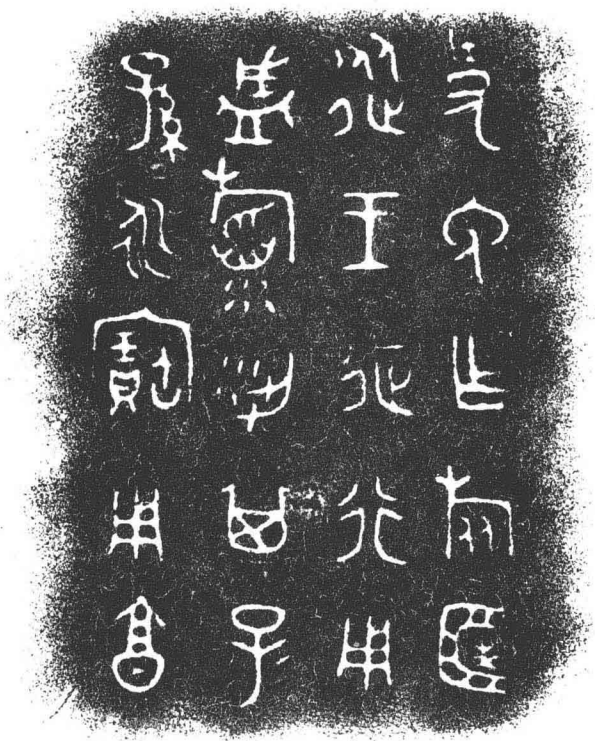 史免乍旅匡
從王征行用
盛稻粱其子〓
孫〓永寶用亯